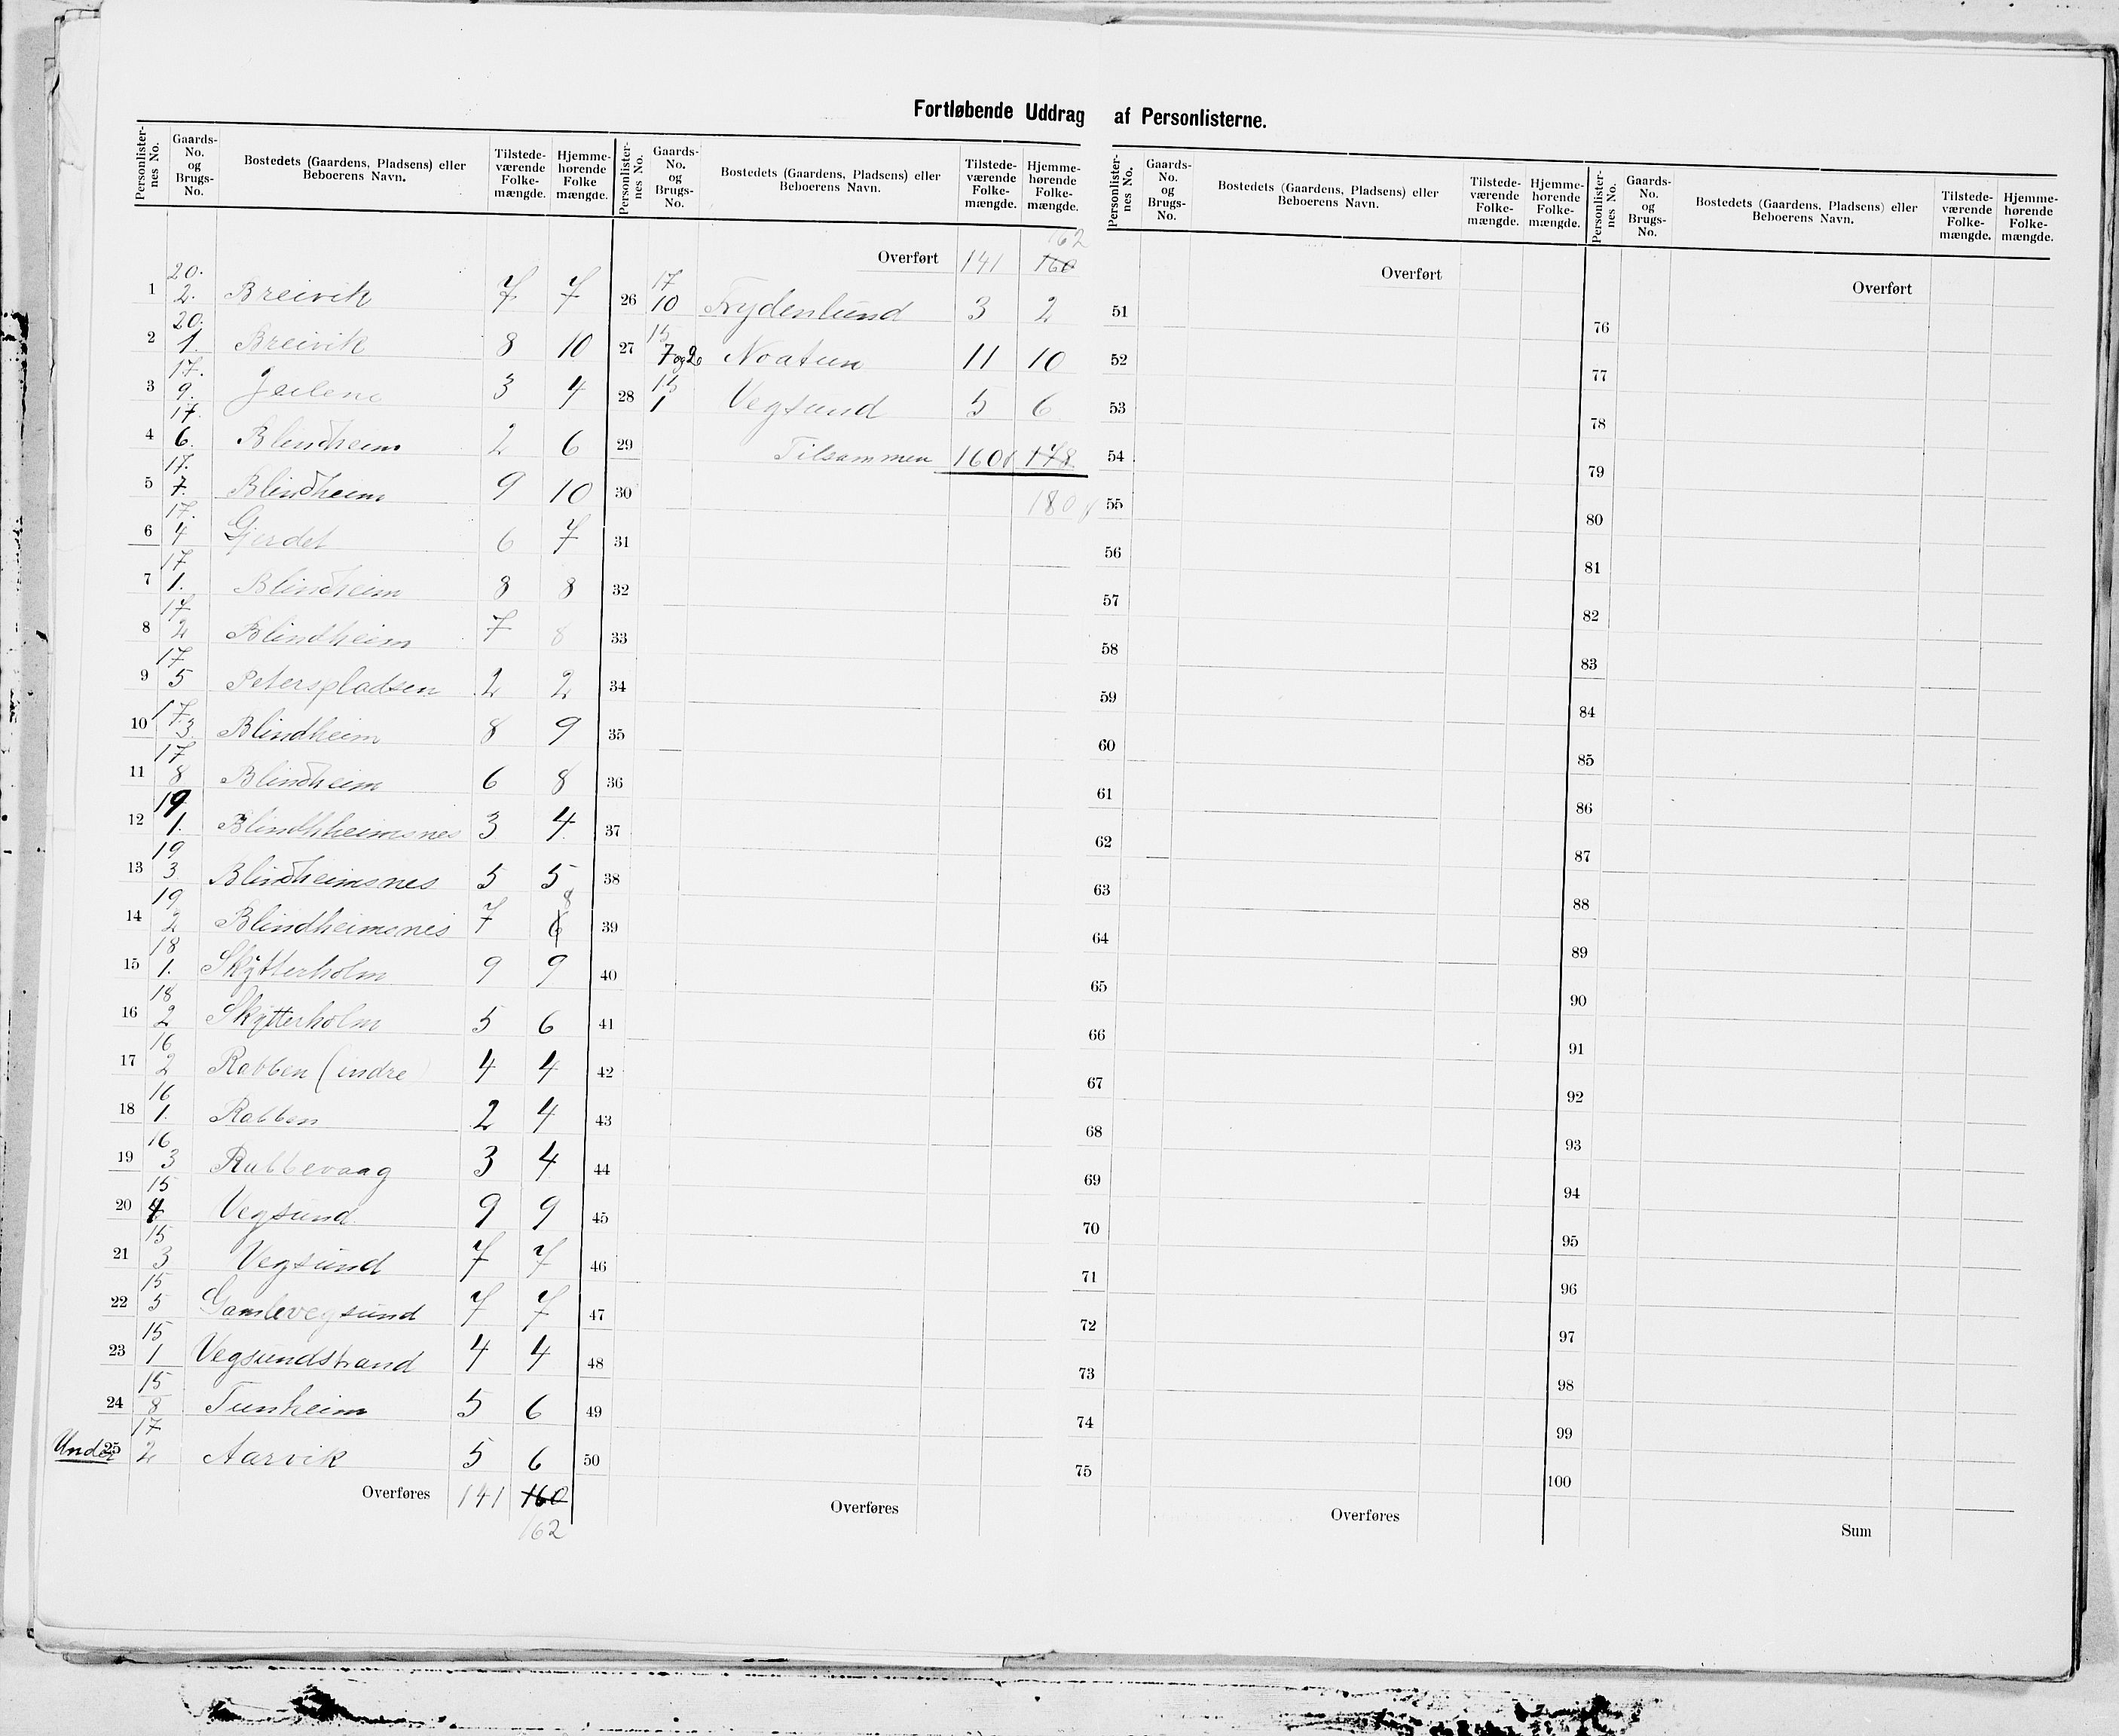 Fortløbende Uddrag af Personlisterne.
Personlister-nes No. | Gaards-No. og Brugs-No. | Bostedets (Gaardens, Pladsens) eller Beboerens Navn. | Tilstede-værende Folke-mængde. | Hjemme-hørende Folke mængde.
1 | 20. 2. | Breivik | 7 | 7
2 | 20. 1. | Breivik | 8 | 10
3 | 17. 9. | | 3 | 4
4 | 17. 6. | Blindheim | 2 | 6
5 | 17. 7. | Blindheim | 9 | 10
6 | 17. 4 | Gjerdet | 6 | 7
7 | 17 1. | Blindheim | 8 | 8
8 | 17 2 | Blindheim | 7 | 8
9 | 17 5 | Peterspladsen | 2 | 2
10 | 17. 3 | Blindheim | 8 | 9
11 | 17 8 | Blindheim | 6 | 8
12 | 19. 1. | Blindhheimsnes | 3 | 4
13 | 19 3 | Blindheimsnes | 5 | 5
14 | 19 2 | Blindheimsnes | 7 | 6 8
15 | 18 1. | Skytterholm | 9 | 9
16 | 18 2 | Skytterholm | 5 | 6
17 | 16 2 | Rabben (indre) | 4 | 4
18 | 16 1. | Rabben | 2 | 4
19 | 16 3 | Rabbevaag | 3 | 4
20 | 15 4 | Vegsund | 9 | 9
21 | 15 3 | Vegsund | 7 | 7
22 | 15 5 | Gamlevegsund | 7 | 7
23 | 15 1 | Vegsundstrand | 4 | 4
24 | 15 8 | Tunheim | 5 | 6
Under 25 | 17 2 | Aarvik | 5 | 6
Overføres | 141 | 160
162
Personlister-nes No. | Gaards-No. og Brugs-No. | Bostedets (Gaardens, Pladsens) eller Beboerens Navn. | Tilstede-værende Folke-mængde. | Hjemme-hørende Folke-mængde.
162
Overført | 141 | 160
26 | 17 10 | Frydenlund | 3 | 2
27 | 15 7 og 2 | Noatun | 11 | 10
28 | 15 1 | Vegsund | 5 | 6
29 | Tilsammen | 160 | 178
30 | 180
31
32
33
34
35
36
37
38
39
40
41
42
43
44
45
46
47
48
49
50
Overføres
Personlister-nes No. | Gaards-No. og Brugs-No. | Bostedets (Gaardens, Pladsens) eller Beboerens Navn. | Tilstede-værende Folke-mængde. | Hjemme-hørende Folke-mængde.
Overført
51
52
53
54
55
56
57
58
59
60
61
62
63
64
65
66
67
68
69
70
71
72
73
74
75
Overføres
Personlister-nes No. | Gaards-No. og Brugs-No. | Bostedets (Gaardens, Pladsens) eller Beboerens Navn. | Tilstede-værende Folke-mængde. | Hjemme-hørende Folke-mængde.
Overført
76
77
78
79
80
81
82
83
84
85
86
87
88
89
90
91
92
93
94
95
96
97
98
99
100
Sum